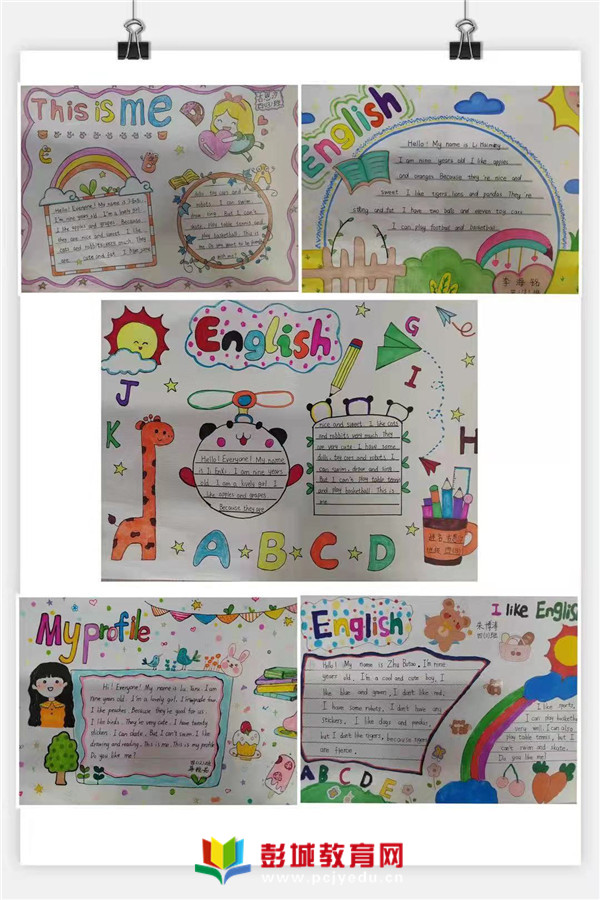 This is me
Hello! Everyone! My name is
I'm nine years old. I'm a lovely girl.
I like apples and grapes. Because
they are nice and sweet. I like
cats and rabbits very much. They
are cute and fat. I have some
dolls, toy cars and
robots. I can swim,
draw, sing. But I can't
skate, play table tennis and
play basketball. This is
me. Do you want to be friends
with me?
English
Hello! My name is Li
I am nine years old. I like apples
and oranges. Because they're nice and
sweet. I like tigers, lions and pandas. They're
strong and fat. I have two balls and eleven toy cars.
I can play football and basketball.
English
G
I
J
K
H
Hello! Everyone! My name
is Ji EnXi. I am nine years
old. I am a lovely girl. I
like apples and grapes.
Because they are
nice and sweet. I like cats
and rabbits very much. They
are very cute. I have some
dolls, toy cars and robots. I
can swim, draw and sing.
But I can't play table tennis
and play basketball. This is
me.
A B C D
My profile
Hi! Everyone! My name is Lu
I am
nine years old. I'm a lovely girl.
I like peaches. Because they're good for us.
I like birds. They're very cute. I have twenty
stickers. I can skate. But I can't swim. I like
drawing and reading. This is me. This is my profile.
Do you like me?
English
I like English
Hello! My name is Zhu Botao. I'm nine
years old. I'm a cool and cute boy. I
like blue and green. I don't like red.
I have some robots. I don't have any
stickers. I like dogs and pandas,
but I don't like tigers, because tigers
are
I like sports.
I can play basketball
very well. I can also
play table tennis, but I
can't swim and skate.
Do you like me?
A B C D E
彭城教育网
www.pcjyedu.cn